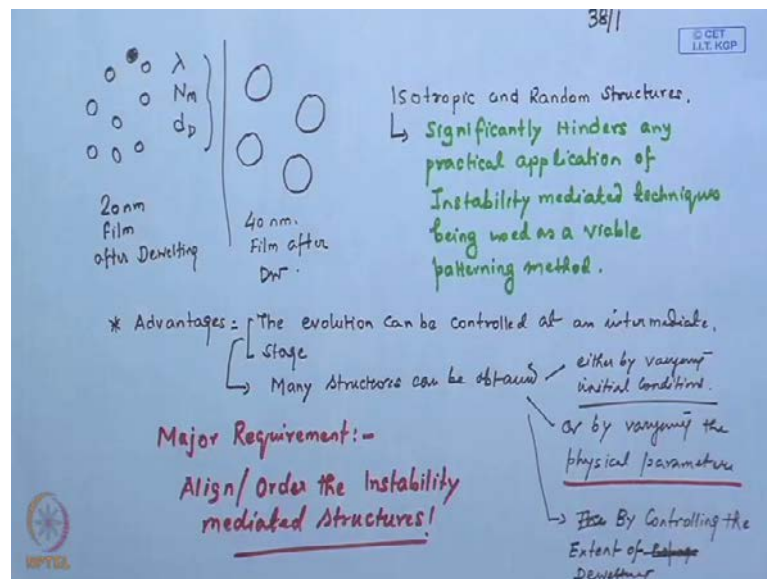 38/1
© CET
I.I.T. KGP
λ
Nm
dD
20nm
Film
after Dewetting
40 nm.
Film after
DW.
Isotropic and Random Structures.
↳ Significantly Hinders any
practical application of
Instability mediated techniques
being used as a viable
patterning method.
* Advantages = The evolution can be controlled at an intermediate,
stage
↳ Many structures can be obtained
either by varying
initial conditions.
or by varying the
physical parameters
↳ By Controlling the
Extent of
Dewetting
Major Requirement:-
Align/Order the Instability
mediated structures!
NPTEL